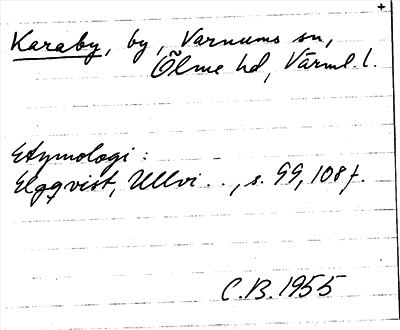 Karaby, by, Varnums sn,
Ölme hd, Värml. l.
Etymologi:
Elgqvist, Ullvi . . , s. 99, 108 f.
C.B. 1955